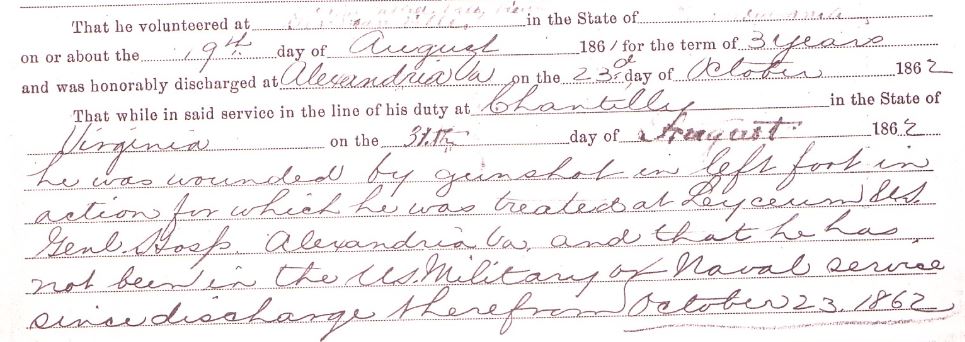 That he volunteered at in the State of
on or about the 19th day of August 1861 for the term of 3 years
and was honorably discharged at Alexandria Va on the 23d day of October 1862
That while in said service in the line of his duty at Chantilly in the State of
Virginia on the 31.th day of August 1862
he was wounded by gunshot in left foot in
action for which he was treated at Lyceum U.S.
Genl. Hosp. Alexandria Va. and that he has
not been in the U.S. Military or Naval service
since discharge therefrom October 23, 1862